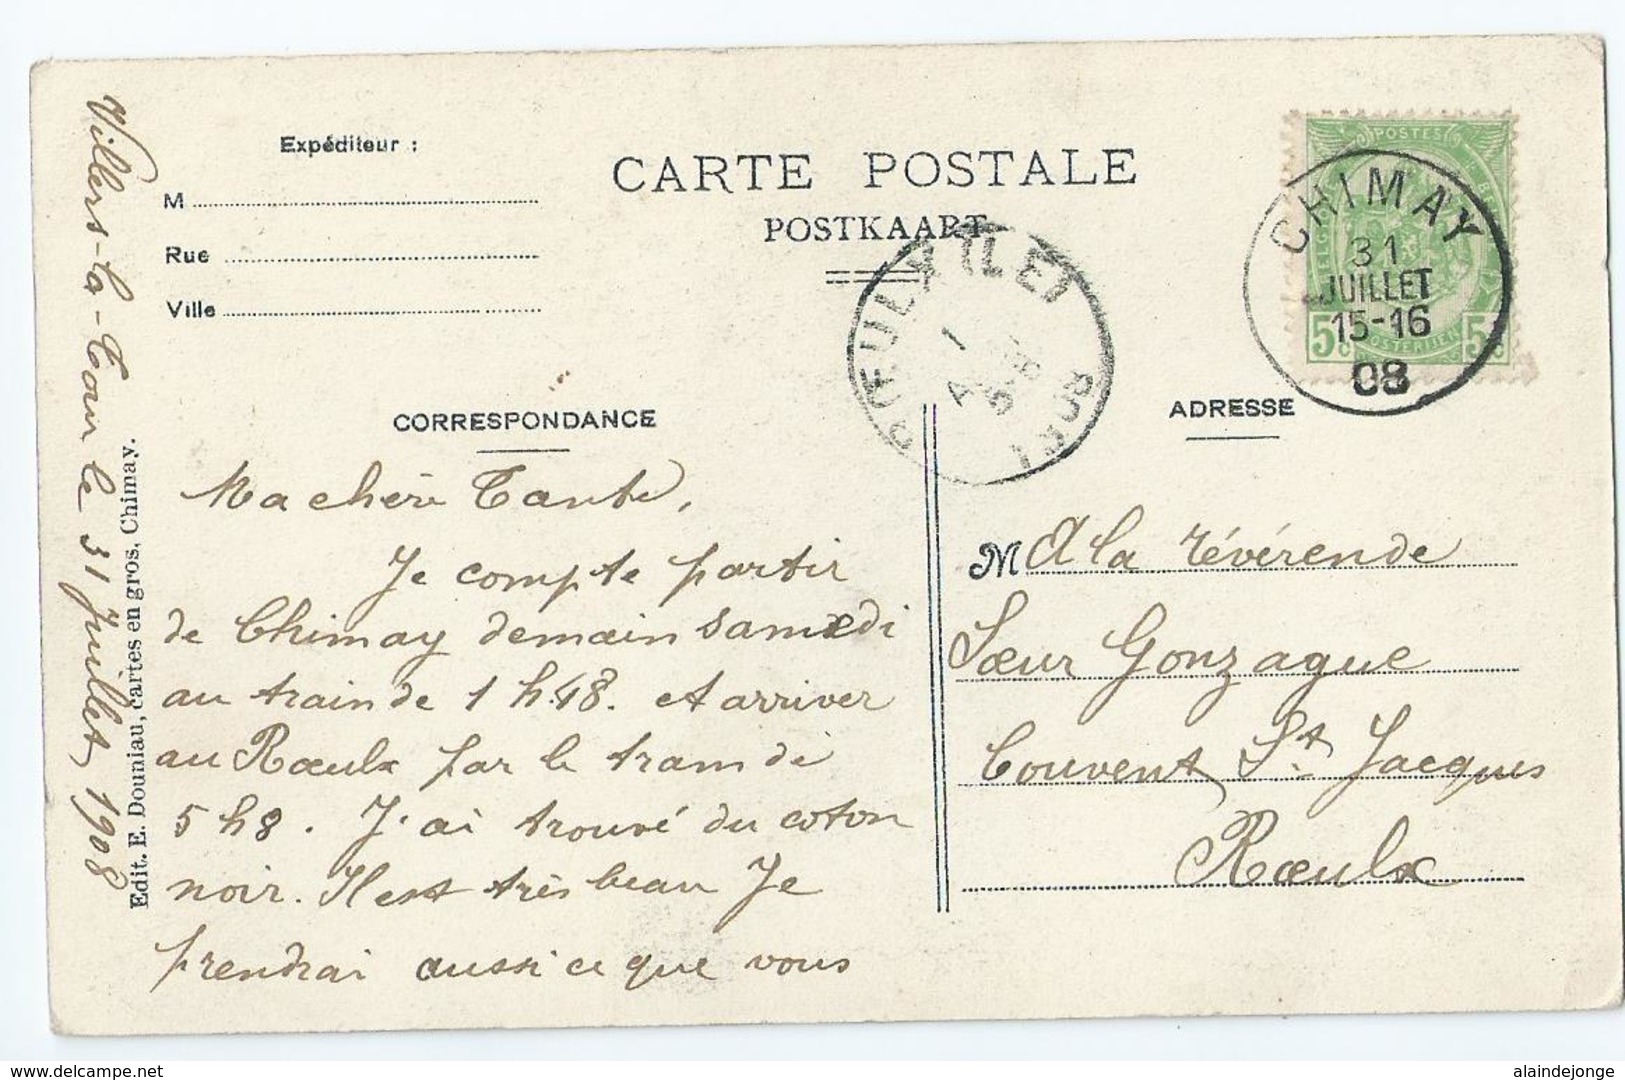 Expéditeur :
M
Rue
Ville
CARTE POSTALE
POSTKAART
POSTES
CHIMAY
31
JUILLET
15-16
08
5c 5c
RŒULX (LE)
1
CORRESPONDANCE
ADRESSE
Villers-la-Tour le 31 Juillet 1908
Edit. E. Douniau, cartes en gros, Chimay.
Ma chère Tante,
Je compte partir
de Chimay demain samedi
au train de 1 h.48. et arriver
au Rœulx par le tram de
5 h 8. J'ai trouvé du coton
noir. Il est très beau Je
prendrai aussi ce que vous
M A la révérende
Sœur Gonzague
Couvent St Jacques
Rœulx
www.delcampe.net
alaindejonge